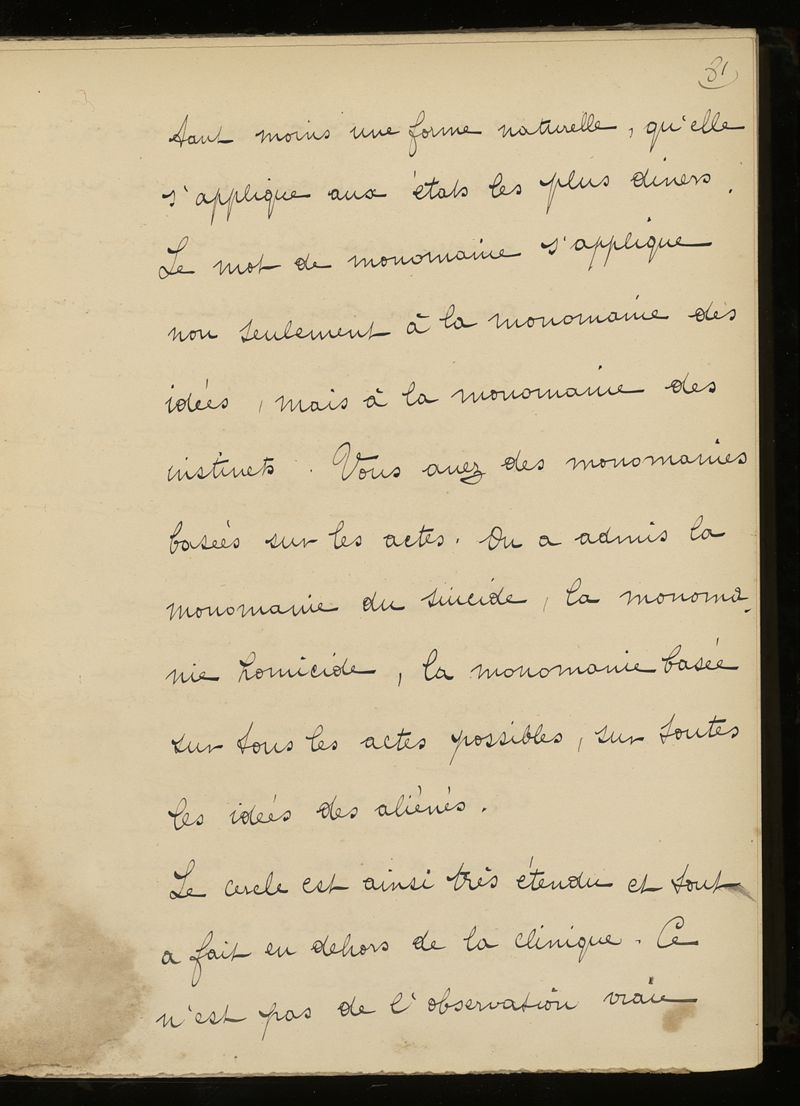 81
tant moins une forme naturelle, qu'elle
s'applique aux états les plus divers.
Le mot de monomanie s'applique
non seulement à la monomanie des
idées, mais à la monomanie des
instincts. Vous avez des monomanies
basées sur les actes. On a admis la
monomanie du suicide, la monoma-
nie homicide, la monomanie basée
sur tous les actes possibles, sur toutes
les idées des aliénés.
Le cercle est ainsi très étendu et tout
a fait en dehors de la clinique. Ce
n'est pas de l'observation vraie